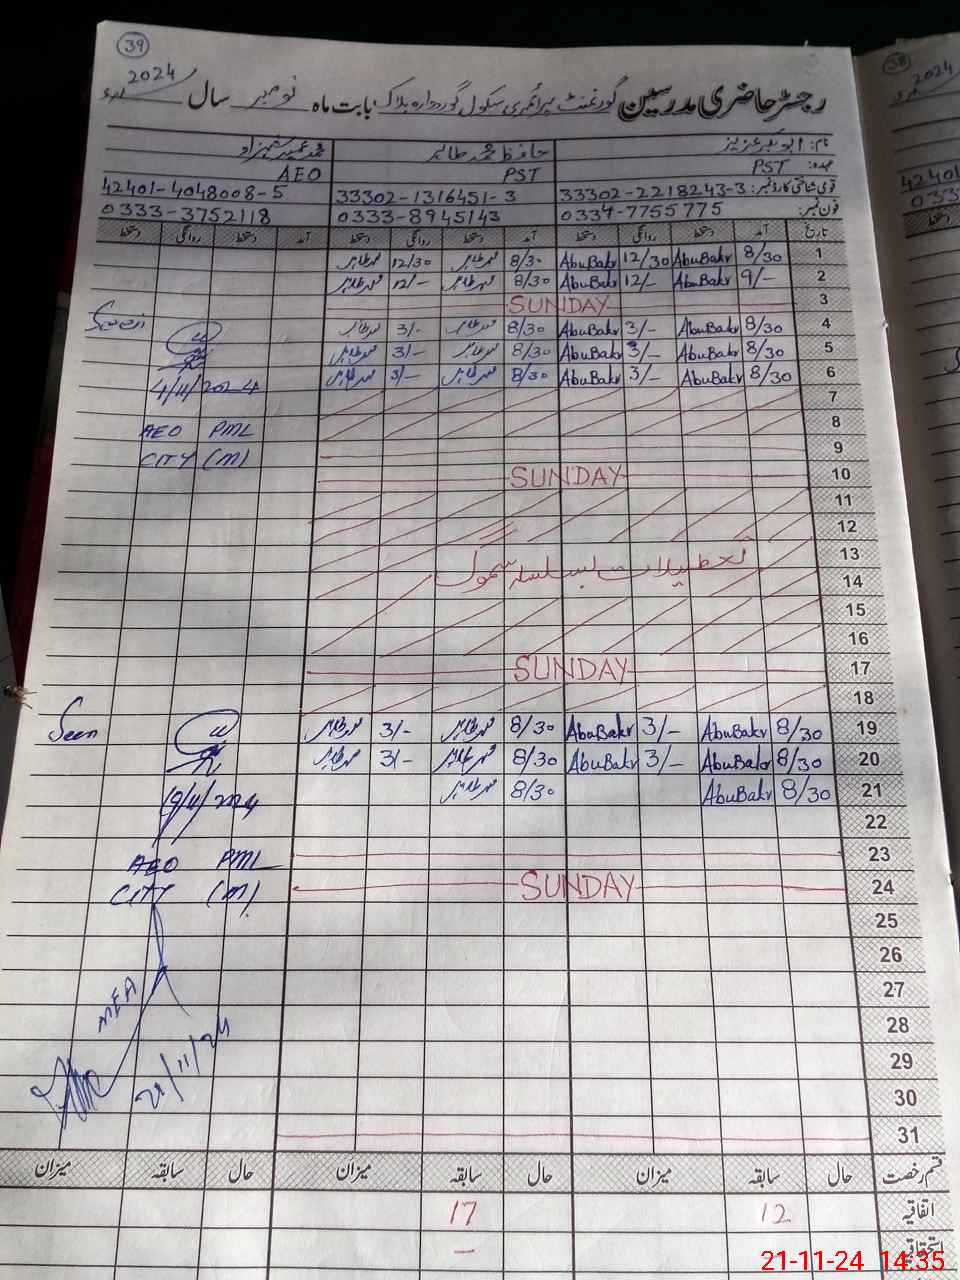 39
2024
رجسٹر حاضری مدرسین گورنمنٹ پرائمری سکول گوردوارہ بلاک بابت ماہ نومبر سال 2024
نام: ابوبکر عزیز حافظ محمد طاہر محمد عمیر شہزاد
عہدہ: PST PST AEO
قومی شناختی کارڈ نمبر: 33302-2218243-3 33302-1316451-3 42401-4048008-5
فون نمبر: 0334-7755775 0333-8945143 0333-3752118
تاریخ آمد دستخط روانگی دستخط آمد دستخط روانگی دستخط آمد دستخط روانگی دستخط
1 8/30 AbuBakr 12/30 AbuBakr 8/30 محمد طاہر 12/30 محمد طاہر
2 9/– AbuBakr 12/– AbuBakr 8/30 محمد طاہر 12/– محمد طاہر
3 SUNDAY
4 8/30 AbuBakr 3/– AbuBakr 8/30 محمد طاہر 3/– محمد طاہر Seen
5 8/30 AbuBakr 3/– AbuBakr 8/30 محمد طاہر 3/– محمد طاہر
6 8/30 AbuBakr 3/– AbuBakr 8/30 محمد طاہر 3/– محمد طاہر 4/11/2024
7
8 AEO PML
9 CITY (M)
10 SUNDAY
11
12
13 تعطیلات بسلسلہ سموگ
14
15
16
17 SUNDAY
18
19 8/30 AbuBakr 3/– AbuBakr 8/30 محمد طاہر 3/– محمد طاہر Seen
20 8/30 AbuBakr 3/– AbuBakr 8/30 محمد طاہر 3/– محمد طاہر
21 8/30 AbuBakr 8/30 محمد طاہر 19/11/2024
22
23 AEO PML
24 SUNDAY CITY (M)
25
26
27
28 MEA
29
30 21/11/24
31
قسم رخصت حال سابقہ میزان حال سابقہ میزان حال سابقہ میزان
اتفاقیہ 12 17
استحقاقیہ –
21-11-24 14:35
38
2024